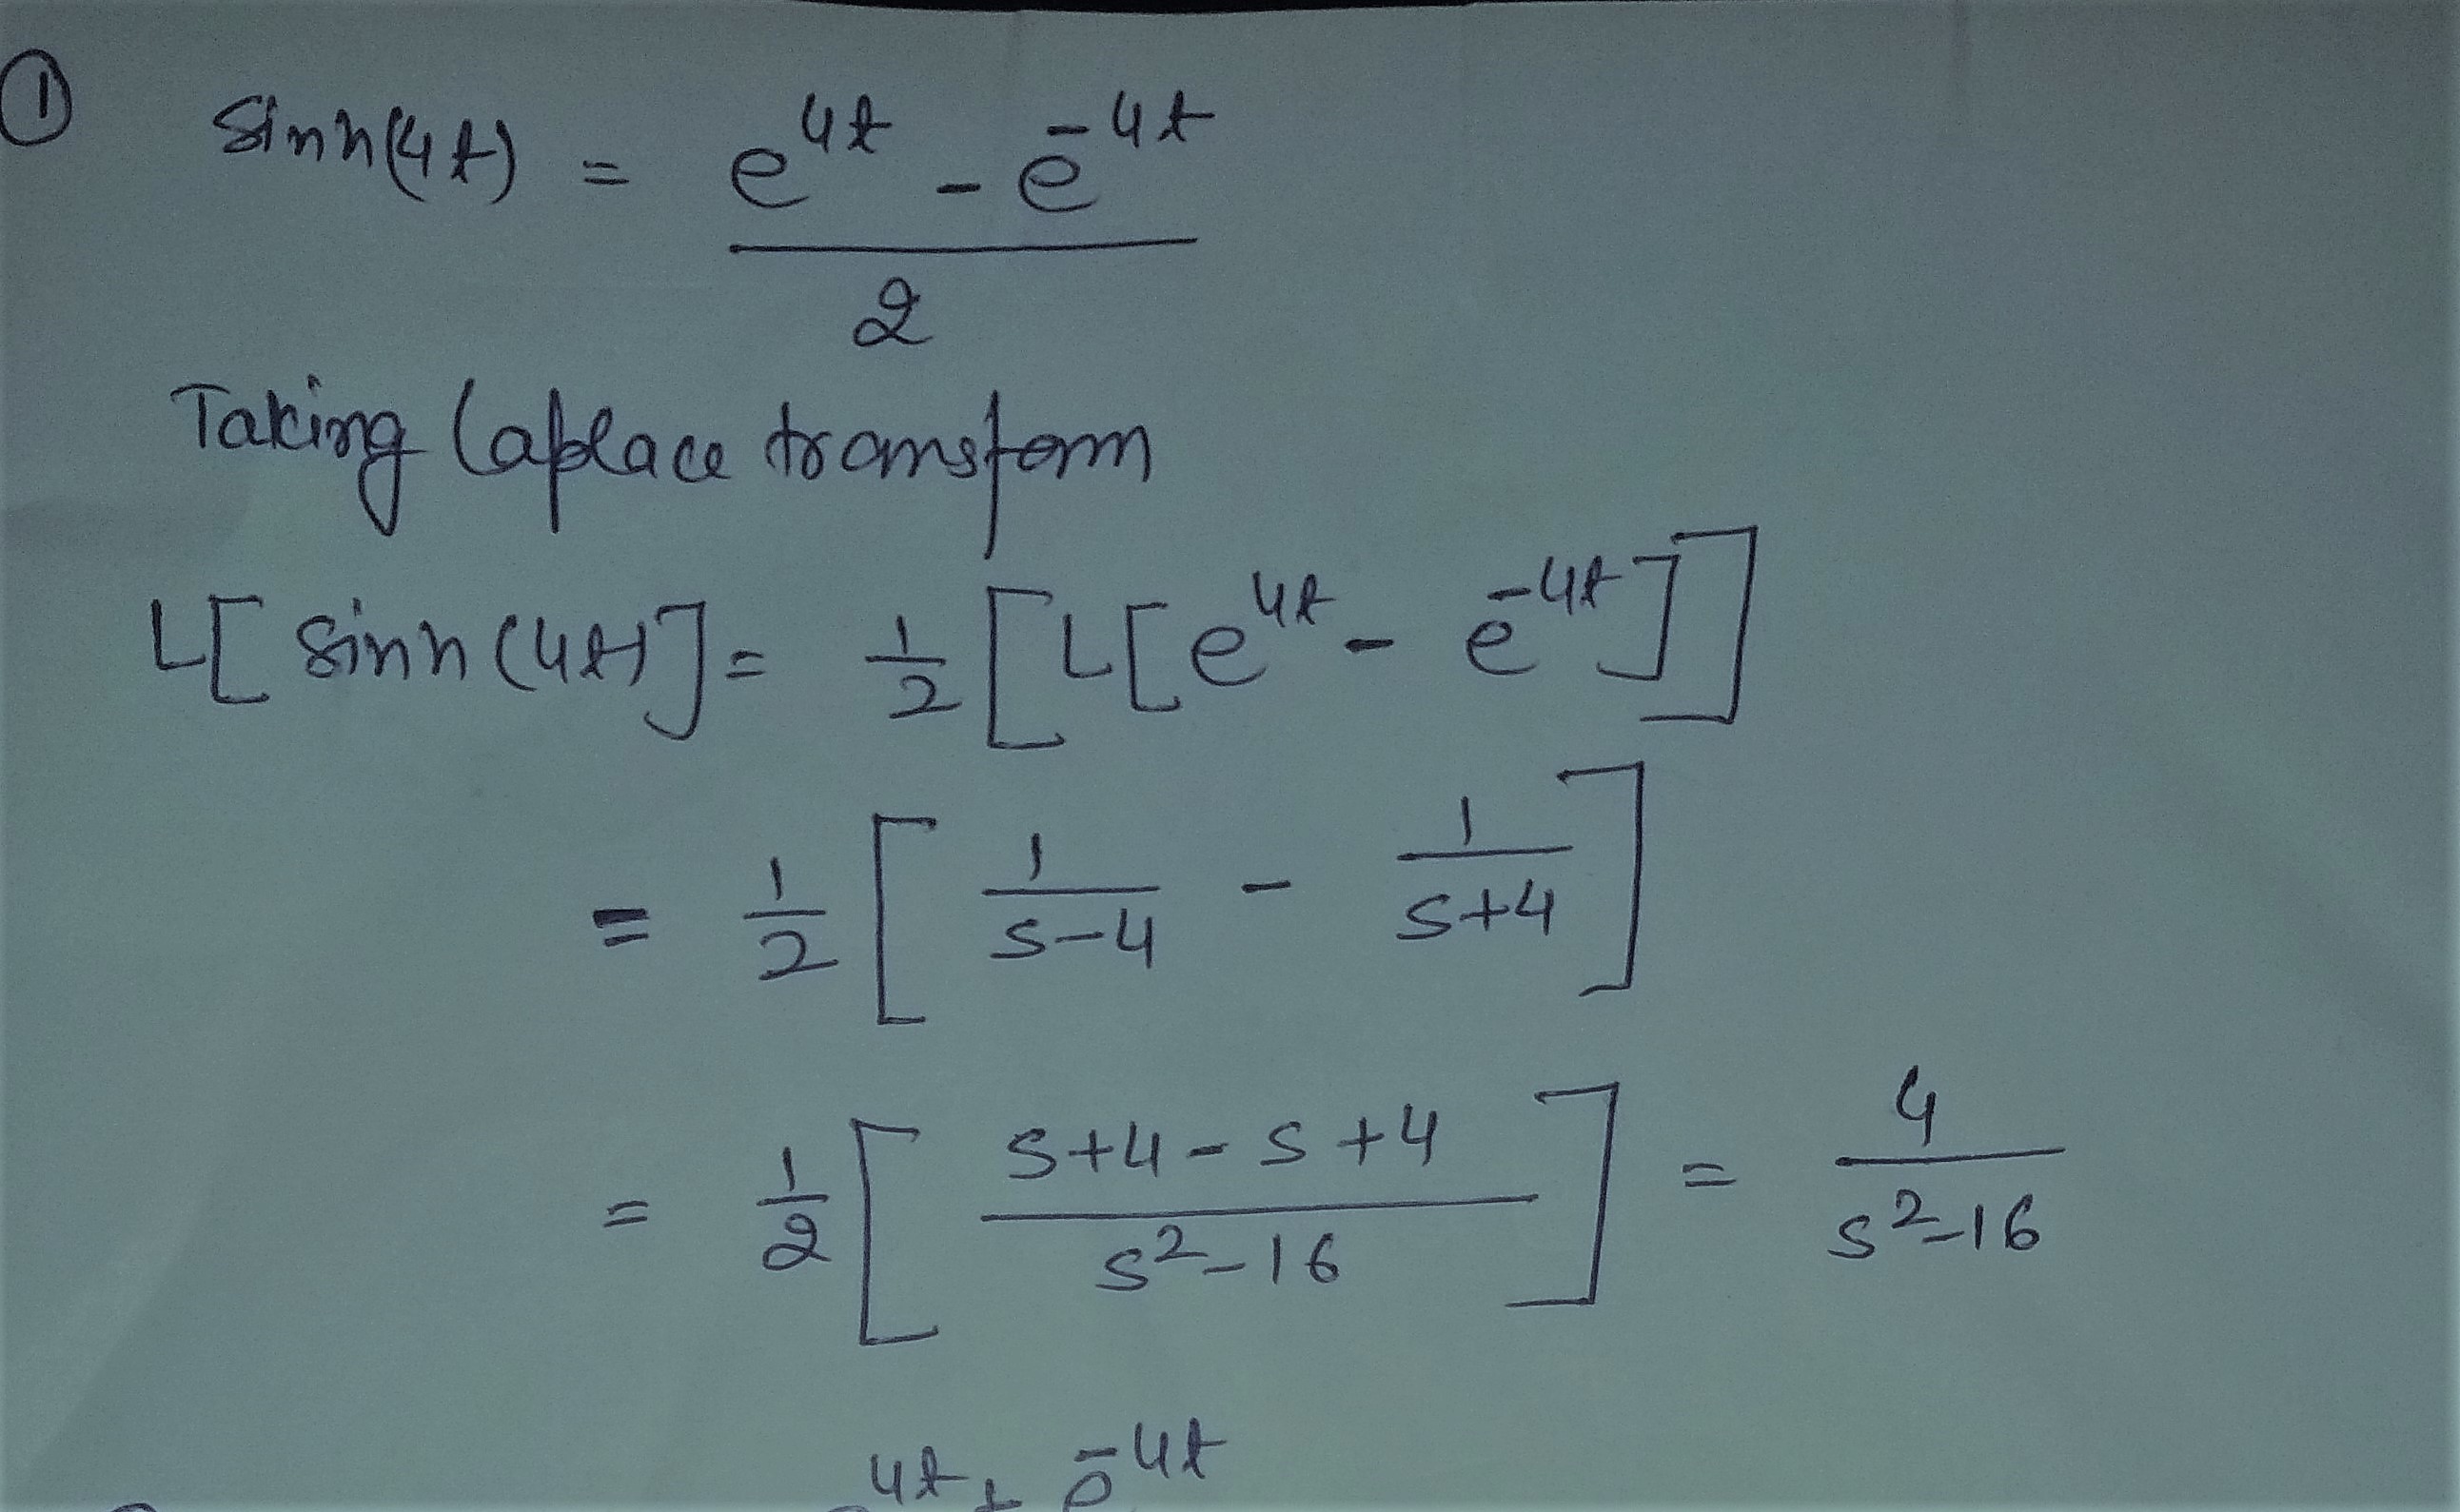 ① Sinh(4t) = (e^{4t} - e^{-4t}) / 2
Taking Laplace transform
L[sinh(4t)] = 1/2 [L[e^{4t} - e^{-4t}]]
= 1/2 [1/(s-4) - 1/(s+4)]
= 1/2 [(s+4-s+4)/(s^2-16)] = 4/(s^2-16)
4t + e^{-4t}